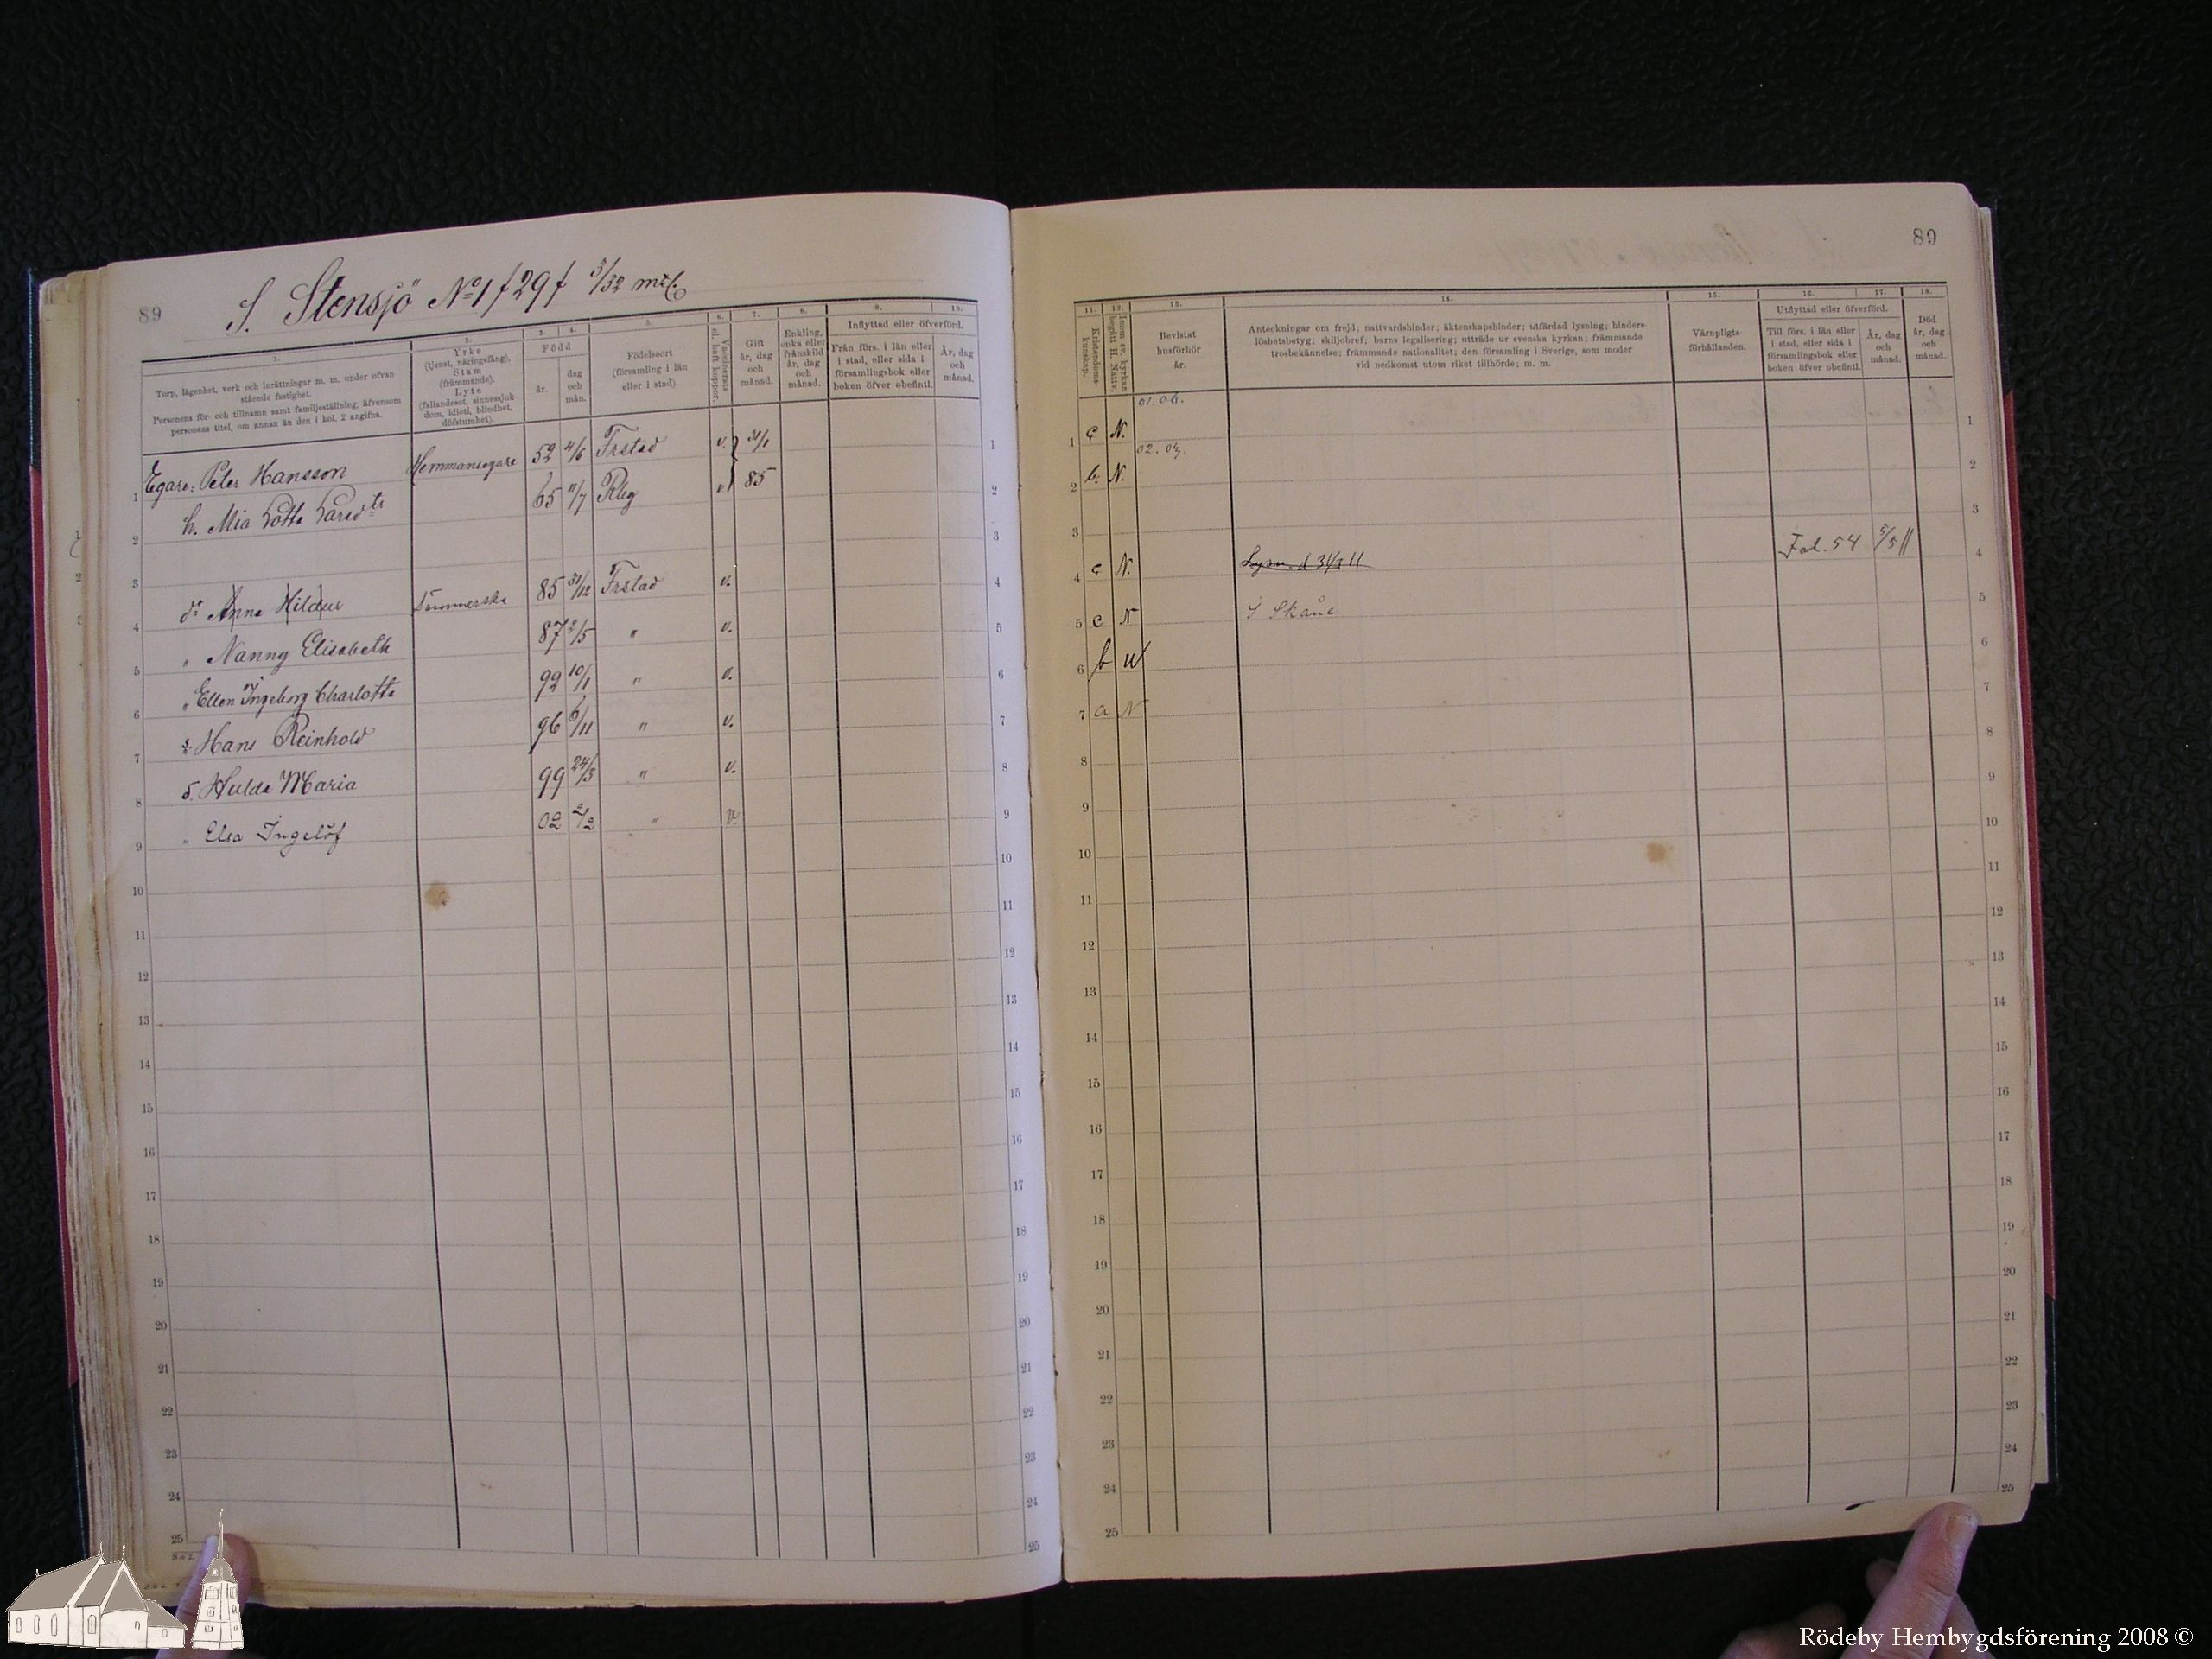 89
S. Stensjö No 1 f 29 f 3/32 mtl.
1. 2. 3. 4. 5. 6. 7. 8. 9. 10.
Torp, lägenhet, verk och inrättningar m. m. under ofvanstående fastighet.
Personens för- och tillnamn samt familjeställning, äfvensom personens titel, om annan än den i kol. 2 angifna.
Yrke (tjenst, näringsfång). Stam (främmande). Lyte (fallandesot, sinnessjukdom, idioti, blindhet, döfstumhet).
Född
år. dag och mån.
Födelseort (församling i län eller i stad).
Vaccinerats el. haft koppor.
Gift år, dag och månad.
Enkling, enka eller frånskild år, dag och månad.
Inflyttad eller öfverförd.
Från förs. i län eller i stad, eller sida i församlingsbok eller boken öfver obefintl.
År, dag och månad.
1 Egare: Peter Hansson Hemmansegare 52 4/6 Frstad v. 31/1 1
2 h. Mia Lotta Larsdtr 65 11/7 Rbg v. 85 2
3 3
4 dr Anna Hildur Sömmerska 85 31/12 Frstad v. 4
5 " Nanny Elisabeth 87 2/5 " v. 5
6 " Ellen Ingeborg Charlotta 92 10/1 " v. 6
7 s. Hans Reinhold 96 6/11 " v. 7
8 Hulda Maria 99 24/3 " v. 8
9 " Elsa Ingelöf 02 2/2 " v. 9
10 10
11 11
12 12
13 13
14 14
15 15
16 16
17 17
18 18
19 19
20 20
21 21
22 22
23 23
24 24
25 25
89
11. 12. 13. 14. 15. 16. 17. 18.
Kristendomskunskap.
Inom sv. kyrkan begått H. Nattv.
Bevistat husförhör år.
Anteckningar om frejd; nattvardshinder; äktenskapshinder; utfärdad lysning; hinderslöshetsbetyg; skiljobref; barns legalisering; utträde ur svenska kyrkan; främmande trosbekännelse; främmande nationalitet; den församling i Sverige, som moder vid nedkomst utom riket tillhörde; m. m.
Värnpligtsförhållanden.
Utflyttad eller öfverförd.
Till förs. i län eller i stad, eller sida i församlingsbok eller boken öfver obefintl.
År, dag och månad.
Död år, dag och månad.
01. 06.
1 c N. 1
02. 03.
2 b. N. 2
3 3
4 c N. Lysn. d 31/3 11 Fol. 54 5/5 11 4
5 c N I Skåne 5
6 b u 6
7 a N 7
8 8
9 9
10 10
11 11
12 12
13 13
14 14
15 15
16 16
17 17
18 18
19 19
20 20
21 21
22 22
23 23
24 24
25 25
Rödeby Hembygdsförening 2008 ©